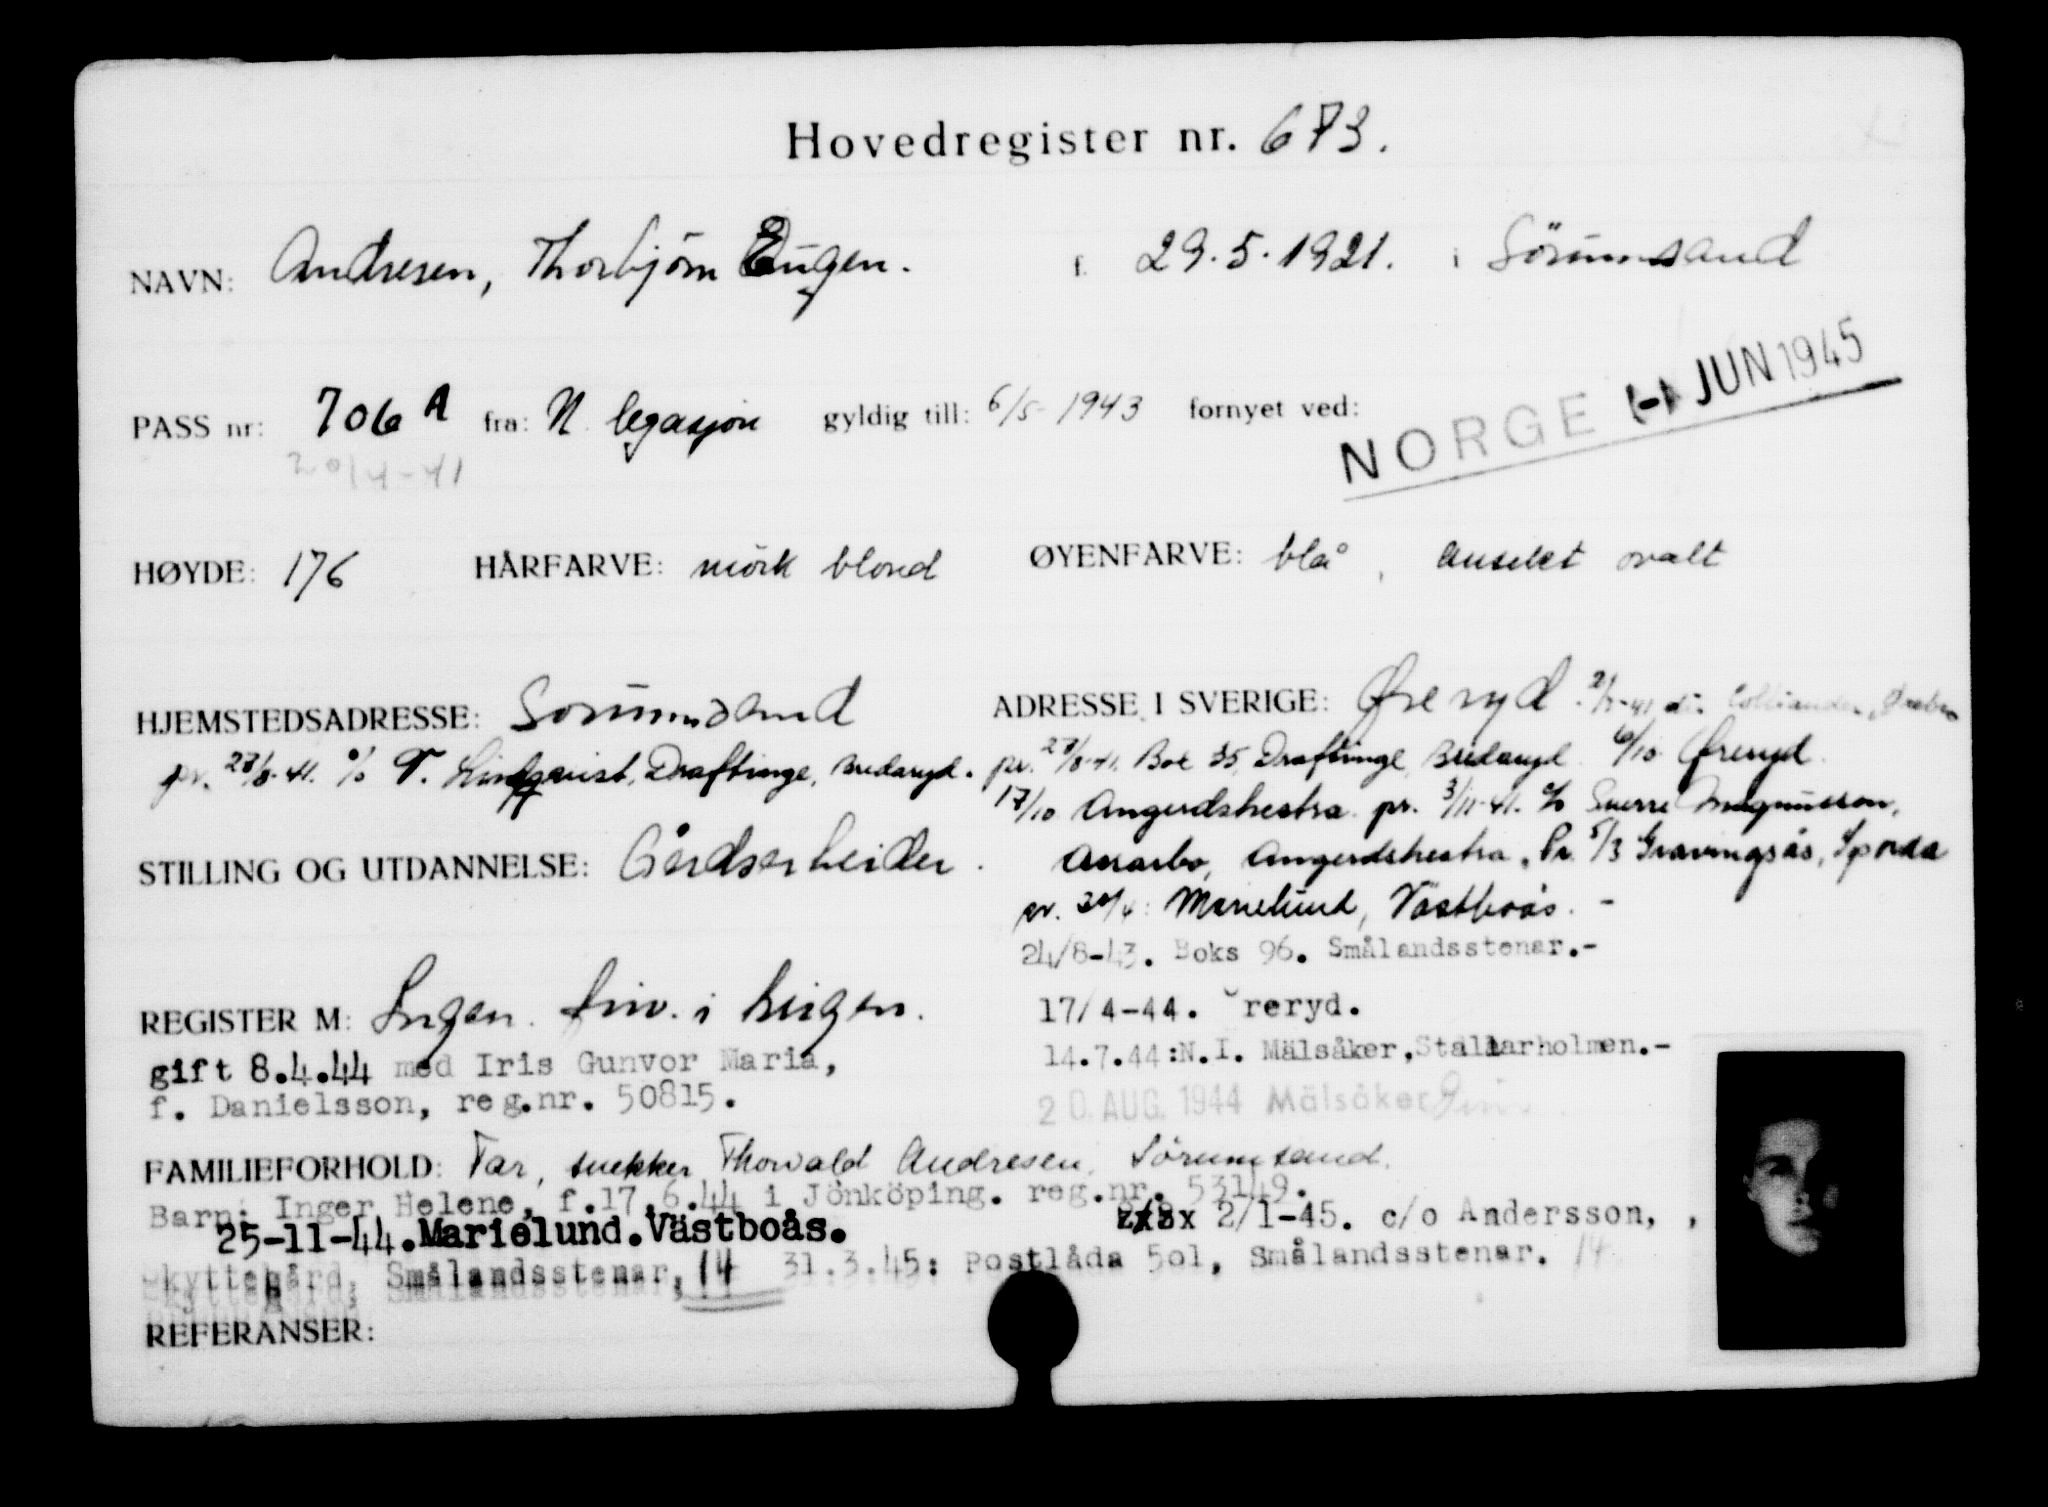 Hovedregister nr. 673.
NAVN: Andresen, Thorbjörn Eugen. f. 29.5.1921. i Sörumsand
NORGE JUN 1945
PASS nr: 706 A fra: N legasjon gyldig till: 6/5-1943 fornyet ved:
20/4-41
HØYDE: 176 HÅRFARVE: mörk blond ØYENFARVE: blå, Ansiket ovalt
HJEMSTEDSADRESSE: Sörumsand
pr. 28/8-41. c/o T. Lindqvist, Draftinge, Bredaryd.
ADRESSE I SVERIGE: Øreryd.
pr. 28/8-41. Box 35, Draftinge Bredaryd. 6/10 Øreryd.
17/10 Angerdshestra. pr. 3/11-41. c/o Sverre Magnusson,
Angerdshestra. Pr. 5/3 Gravingsås,
pr. Marielund, Västboås. -
24/8-43. Boks 96. Smålandsstenar.-
17/4-44. reryd.
14.7.44:N.I. Mälsåker,Stallarholmen.-
20. AUG. 1944 Mälsåker
STILLING OG UTDANNELSE: Gårdsarbeider.
REGISTER M: Ingen. i krigen.
gift 8.4.44 med Iris Gunvor Maria,
f. Danielsson, reg.nr. 50815.
FAMILIEFORHOLD: Far, snekker Thorvald Andresen, Sörumsand.
Barn: Inger Helene, f.17.6.44 i Jönköping. reg.nr. 53149.
25-11-44.Marielund.Västboås. 2/1-45. c/o Andersson, ,
kyttegård, Smålandsstenar, 14 31.3.45: Postlåda 501, Smålandsstenar. 14
REFERANSER: